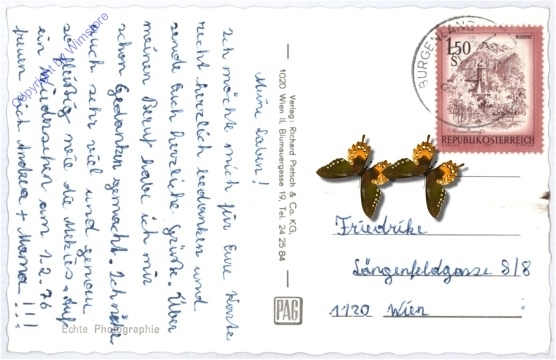 Meine Lieben!
Ich möchte mich für Eure Karte
recht herzlich bedanken und
sende Euch herzliche Grüße. Über
meinen Beruf habe ich mir
schon Gedanken gemacht. Ich
auch sehr viel und genau
so fleißig wie die Auf
ein Wiedersehen am 1.2.76
freuen sich Andrea + Mama!!!
Echte Photographie
Copyright by Wimstore
Verlag: Richard Pietsch & Co. KG,
1020 Wien II, Blumauergasse 19, Tel. 24 25 84
PAG
BURGENLAND
BLUDENZ
1.50
S
REPUBLIK ÖSTERREICH
Friedrike
Längenfeldgasse 8/8
1120 Wien